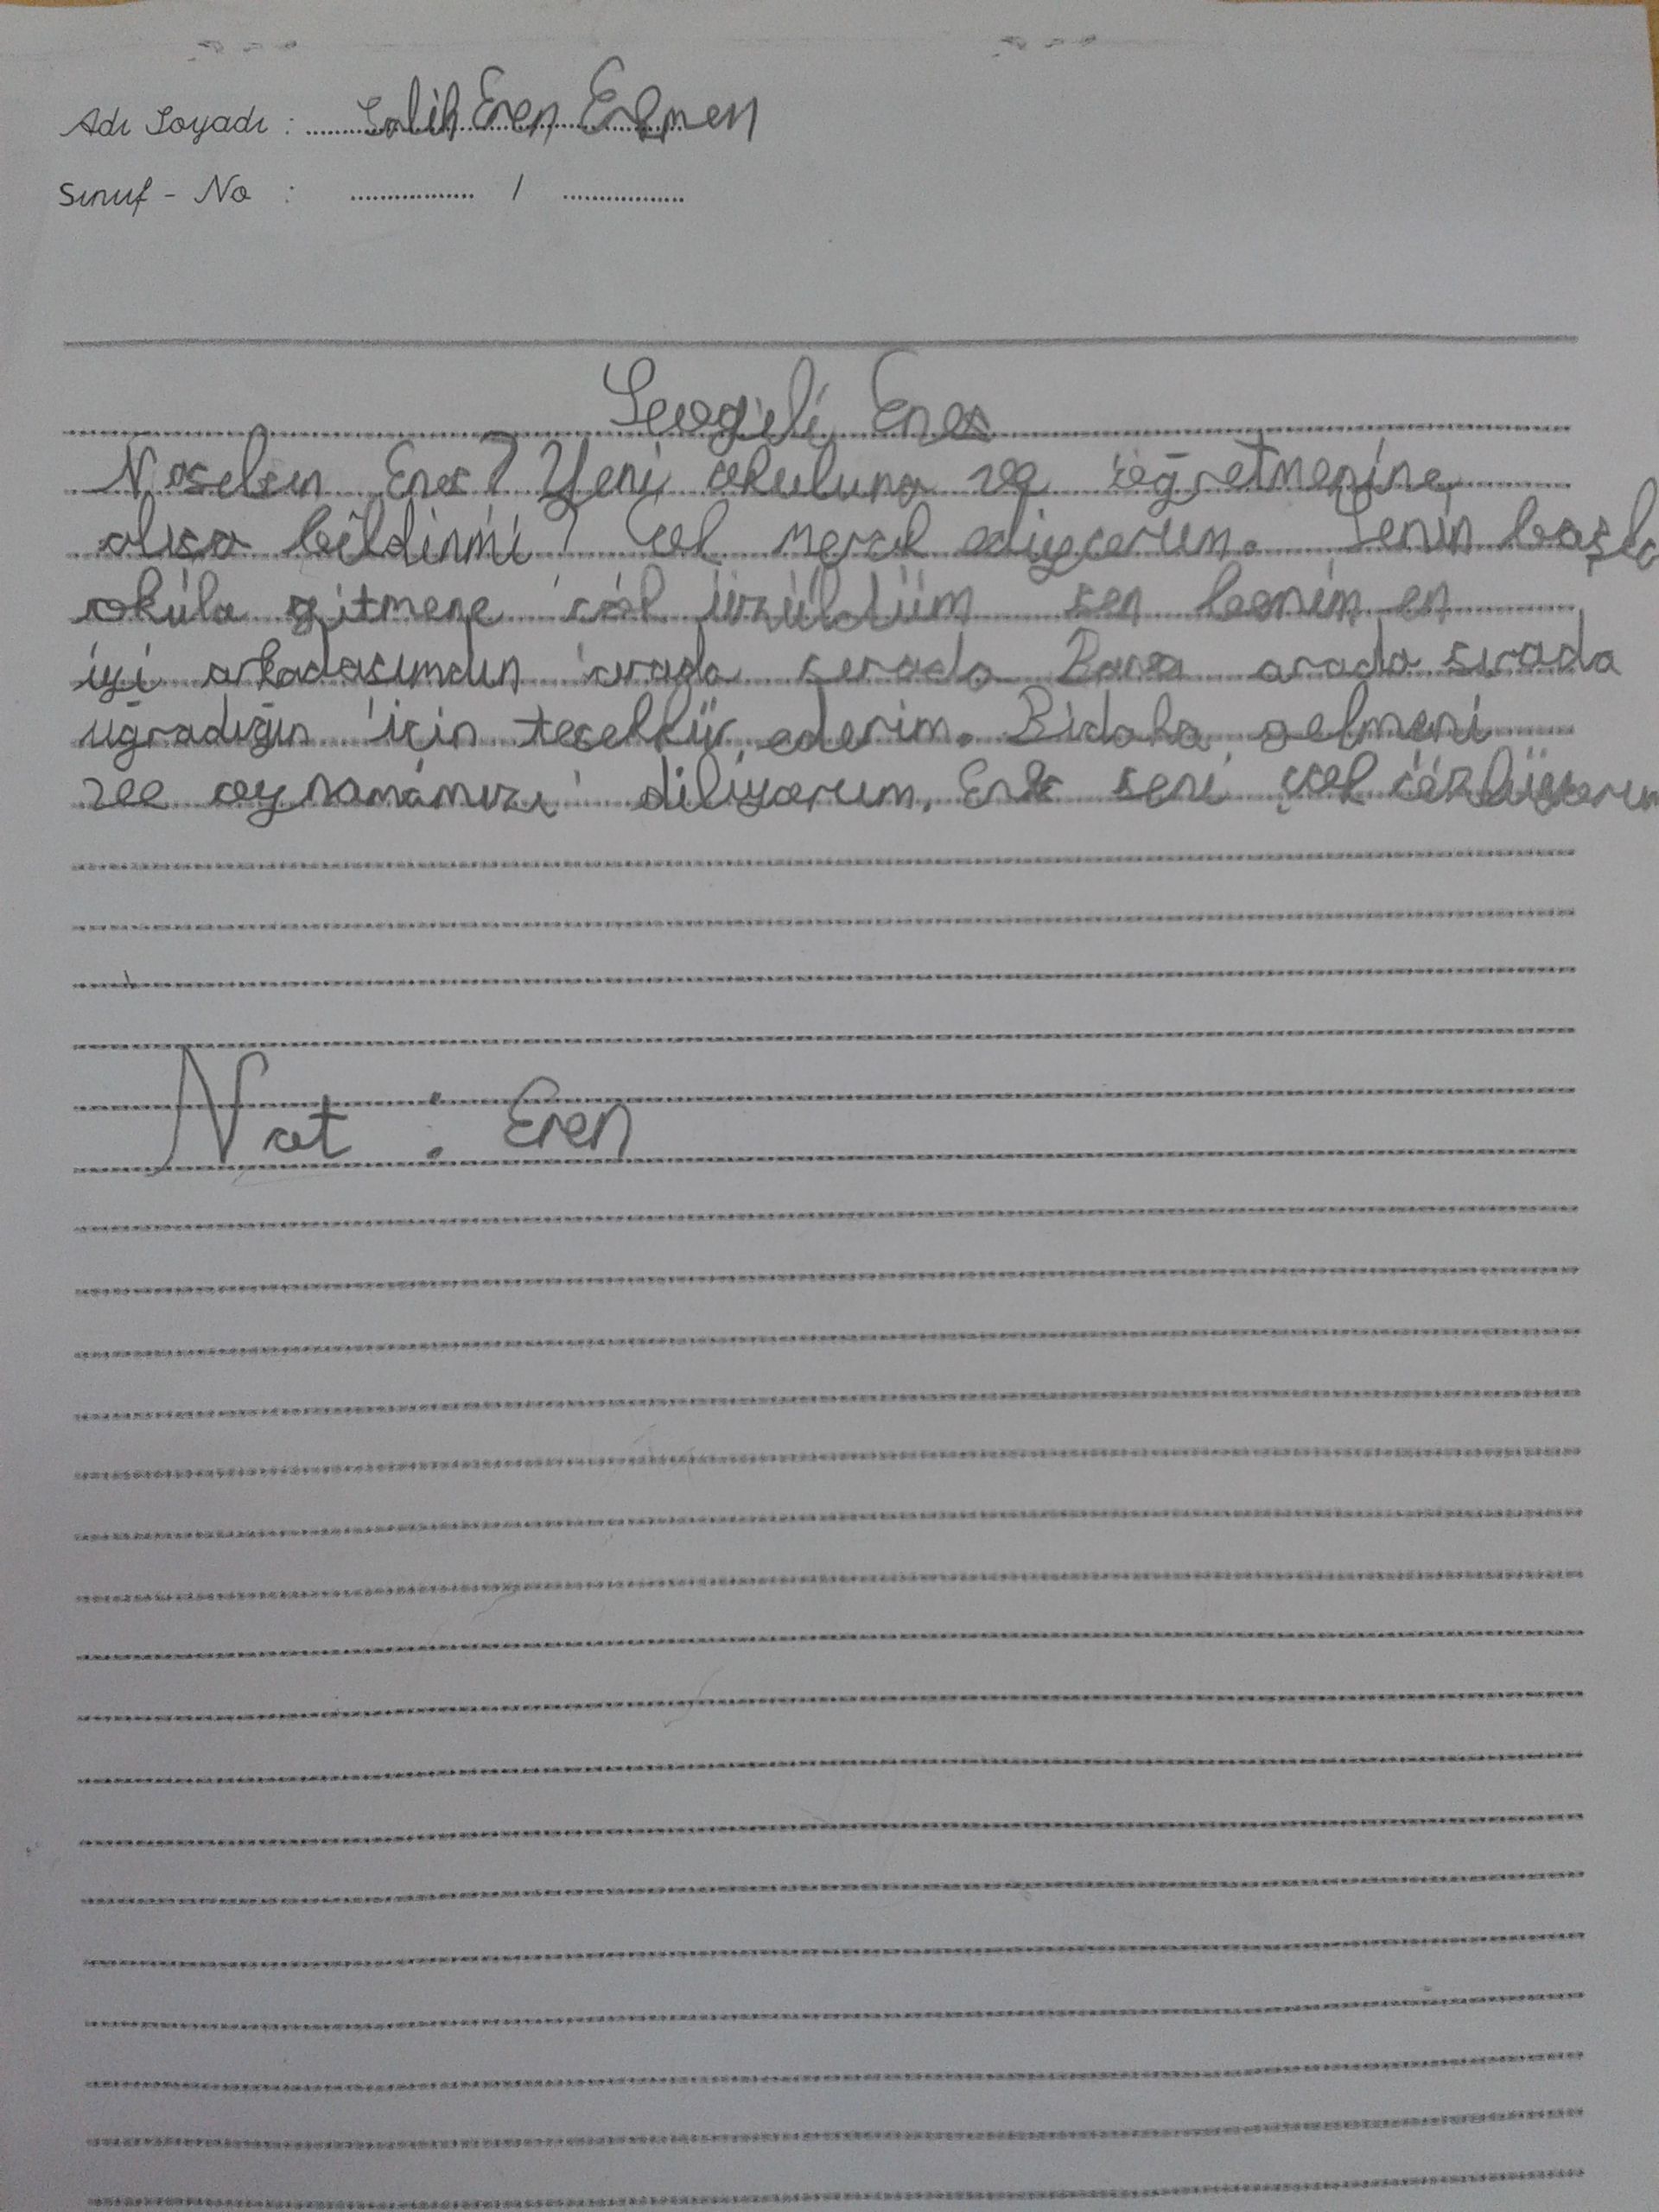 Adı Soyadı : Salih Eren Erkmen
Sınıf - No : /
Sevgili Enes
Naselsın Enes? Yeni okuluna ve öğretmenine
alışa bildinmi? Çok merak ediyorum. Senin başka
okula gitmene çok üzüldüm sen benim en
iyi arkadaşımdın arada sırada Bana arada sırada
uğradığın için teşekkür ederim. Bidaha gelmeni
ve oynamamızı diliyorum. Enes seni çok özlüyorum
Not : Eren